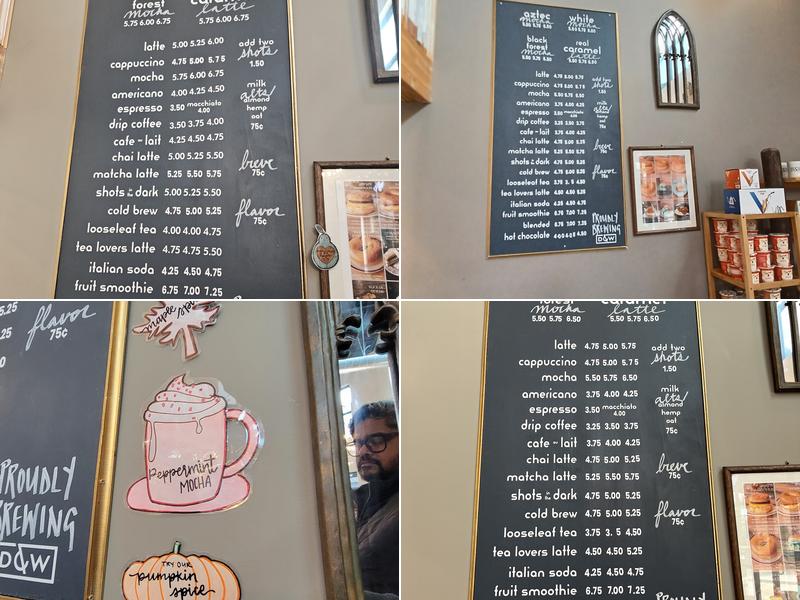 forest
mocha latte
5.75 6.00 6.75 5.75 6.00 6.75
latte 5.00 5.25 6.00
cappuccino 4.75 5.00 5.75
mocha 5.75 6.00 6.75
americano 4.00 4.25 4.50
espresso 3.50 macchiato 4.00
drip coffee 3.50 3.75 4.00
cafe au lait 4.25 4.50 4.75
chai latte 5.00 5.25 5.50
matcha latte 5.25 5.50 5.75
shots in the dark 5.00 5.25 5.50
cold brew 4.75 5.00 5.25
looseleaf tea 4.00 4.00 4.75
tea lovers latte 4.75 4.75 5.50
italian soda 4.25 4.50 4.75
fruit smoothie 6.75 7.00 7.25
add two
shots
1.50
milk
alts/
almond
hemp
oat
75¢
breve
75¢
flavor
75¢
aztec white
mocha mocha
black real
forest caramel
mocha latte
latte 4.75 5.00 5.75
cappuccino 4.75 5.00 5.75
mocha 5.50 5.75 6.50
americano 3.75 4.00 4.25
espresso 3.50 macchiato 4.00
drip coffee 3.25 3.50 3.75
cafe au lait 3.75 4.00 4.25
chai latte 4.75 5.00 5.25
matcha latte 5.25 5.50 5.75
shots in the dark 4.75 5.00 5.25
cold brew 4.75 5.00 5.25
looseleaf tea 3.75 3. 5 4.50
tea lovers latte 4.50 4.50 5.25
italian soda 4.25 4.50 4.75
fruit smoothie 6.75 7.00 7.25
blended 6.75 7.00 7.25
hot chocolate
add two
shots
1.50
milk
alts/
almond
hemp
oat
75¢
breve
75¢
flavor
75¢
PROUDLY
BREWING
D&W
5.25
flavor
75¢
PROUDLY
BREWING
D&W
maple
Peppermint
MOCHA
TRY OUR
pumpkin
spice
forest caramel
mocha latte
5.50 5.75 6.50 5.50 5.75 6.50
latte 4.75 5.00 5.75
cappuccino 4.75 5.00 5.75
mocha 5.50 5.75 6.50
americano 3.75 4.00 4.25
espresso 3.50 macchiato 4.00
drip coffee 3.25 3.50 3.75
cafe au lait 3.75 4.00 4.25
chai latte 4.75 5.00 5.25
matcha latte 5.25 5.50 5.75
shots in the dark 4.75 5.00 5.25
cold brew 4.75 5.00 5.25
looseleaf tea 3.75 3. 5 4.50
tea lovers latte 4.50 4.50 5.25
italian soda 4.25 4.50 4.75
fruit smoothie 6.75 7.00 7.25
add two
shots
1.50
milk
alts/
almond
hemp
oat
75¢
breve
75¢
flavor
75¢